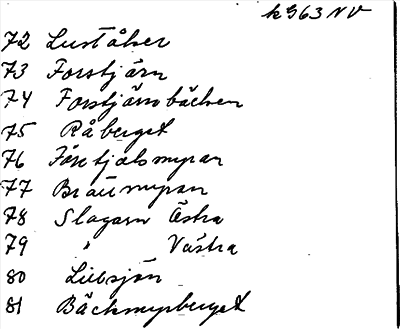 k 963 NV
72 Luståker
73 Forstjärn
74 Forstjärnsbäcken
75 Råberget
76
77
78 Slagarn Östra
79 " Västra
80 Lillsjön
81 Bäckmyrberget